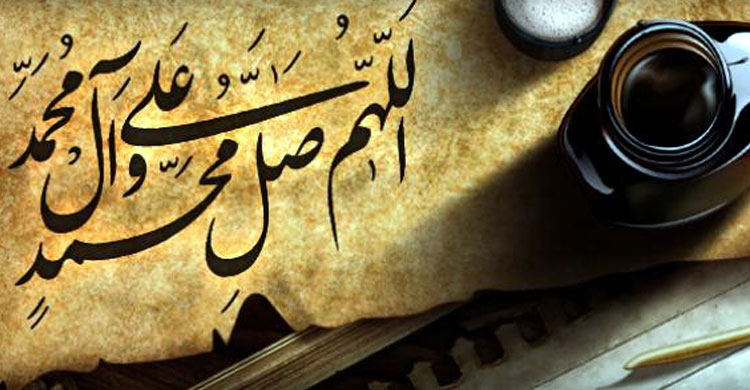 اَللّهُمَّ صَلِّ عَلَى مُحَمَّدٍ وَآلِ مُحَمَّد